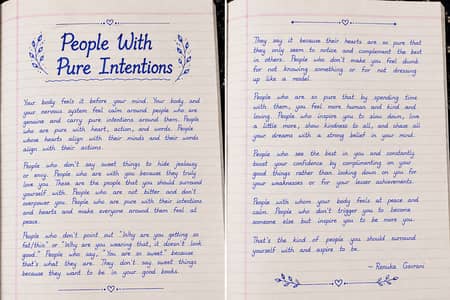 People With
Pure Intentions
Your body feels it before your mind. Your body and
your nervous system feel calm around people who are
genuine and carry pure intentions around them. People
who are pure with heart, action, and words. People
whose hearts align with their minds and their words
align with their actions.
People who don't say sweet things to hide jealousy
or envy. People who are with you because they truly
love you. These are the people that you should surround
yourself with. People who are not bitter and don't
overpower you. People who are pure with their intentions
and hearts and make everyone around them feel at
peace.
People who don't point out "Why are you getting so
fat/thin" or "Why are you wearing that, it doesn't look
good." People who say, "You are so sweet" because
that's what they are. They don't say sweet things
because they want to be in your good books.
They say it because their hearts are so pure that
they only seem to notice and complement the best
in others. People who don't make you feel dumb
for not knowing something or for not dressing
up like a model.
People who are so pure that by spending time
with them, you feel more human and kind and
loving. People who inspire you to slow down, love
a little more, show kindness to all, and chase all
your dreams with a strong belief in your mind.
People who see the best in you and constantly
boost your confidence by complimenting on your
good things rather than looking down on you for
your weaknesses or for your lesser achievements.
People with whom your body feels at peace and
calm. People who don't trigger you to become
someone else but inspire you to be more you.
That's the kind of people you should surround
yourself with and aspire to be.
- Renuka Gavrani